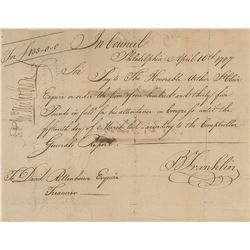 For £ 135-0-0
In Council
Philadelphia April 10th 1787
Sir
Pay to The Honorable Arthur St Clair
Esquire or order the sum of one hundred and thirty five
Pounds in full for his attendance in Congress until the
fifteenth day of March last, according to the Comptroller
Generals Report
B Franklin
To David Rittenhouse Esquire
Treasurer